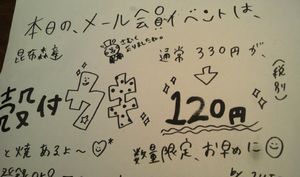 本日の、メール会員イベントは、
昆布森産
さむく なりましたね。
通常 330円が、
殻付 カキ
120円
(税別)
と焼あるよ〜
数量限定、お早めに
by